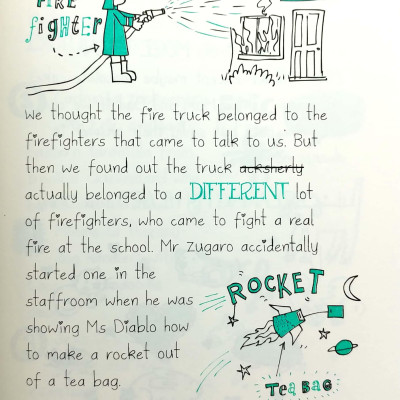 FIRE
FigHTER
we thought the fire truck belonged to the
firefighters that came to talk to us. But
then we found out the truck acksherly
actually belonged to a DIFFERENT lot
of firefighters, who came to fight a real
fire at the school. Mr Zugaro accidentally
started one in the
staffroom when he was
showing Ms Diablo how
to make a rocket out
of a tea bag.
ROCKET
TEA BAG